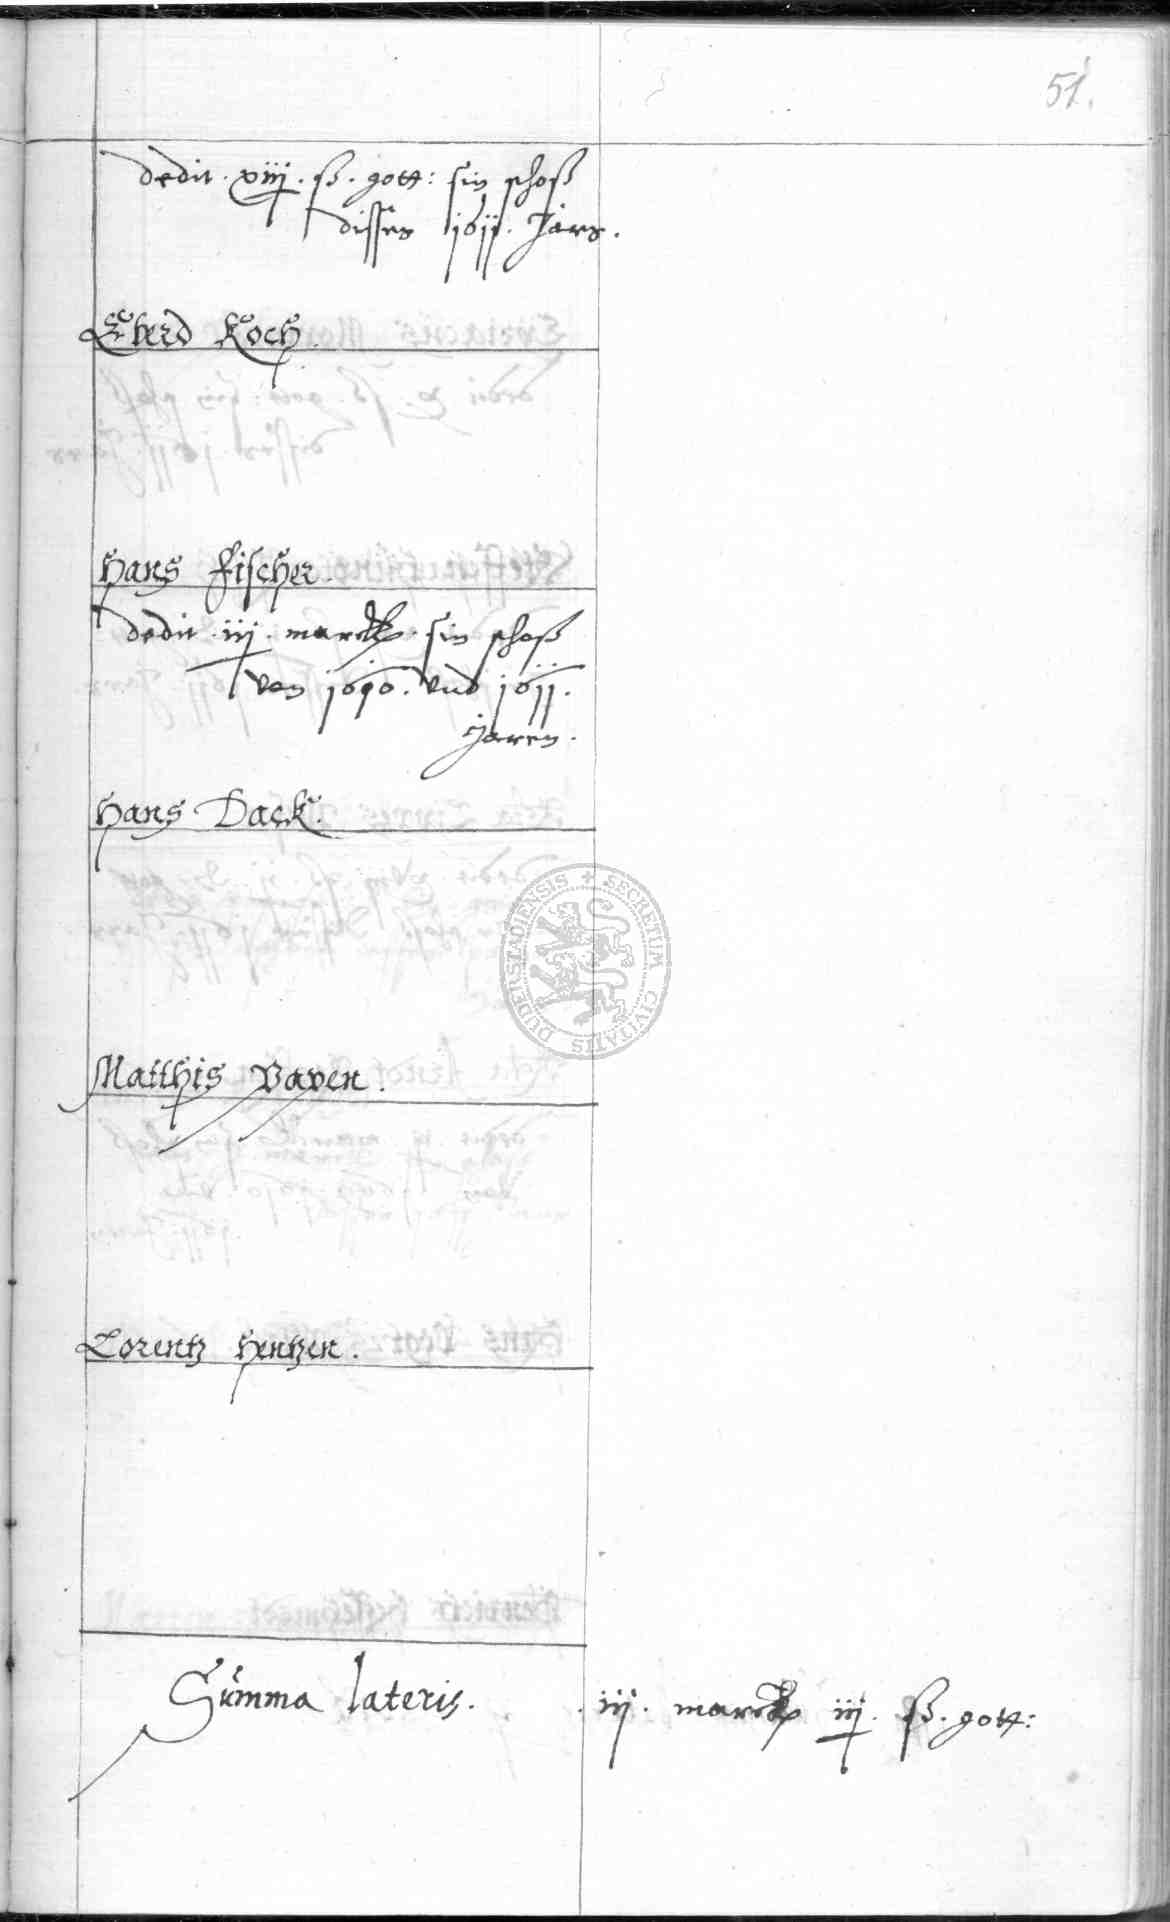 51.
dedit · xiij · ß · gott: sin schoß
disses 1611. Jars.
Eberd Koch.
Hans Fischer.
dedit · iij · marck · sin schoß
von 1610. und 1611.
Jaren.
Hans Dack.
Matthis Vaven.
Lorentz Hentzen.
Summa lateris. · iij · marck iij · ß · gott:
DUDERSTADIENSIS + SECRETUM CIVITATIS